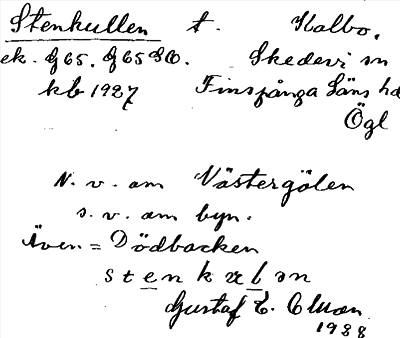 Stenkullen t. Kalbo,
ek. G 65. G 65 SO. Skedevi sn
kb 1927 Finspånga läns hd
Ögl
N. v. om Västergölen
s. v. om byn.
Även = Dödbacken
Gustaf E.
1938